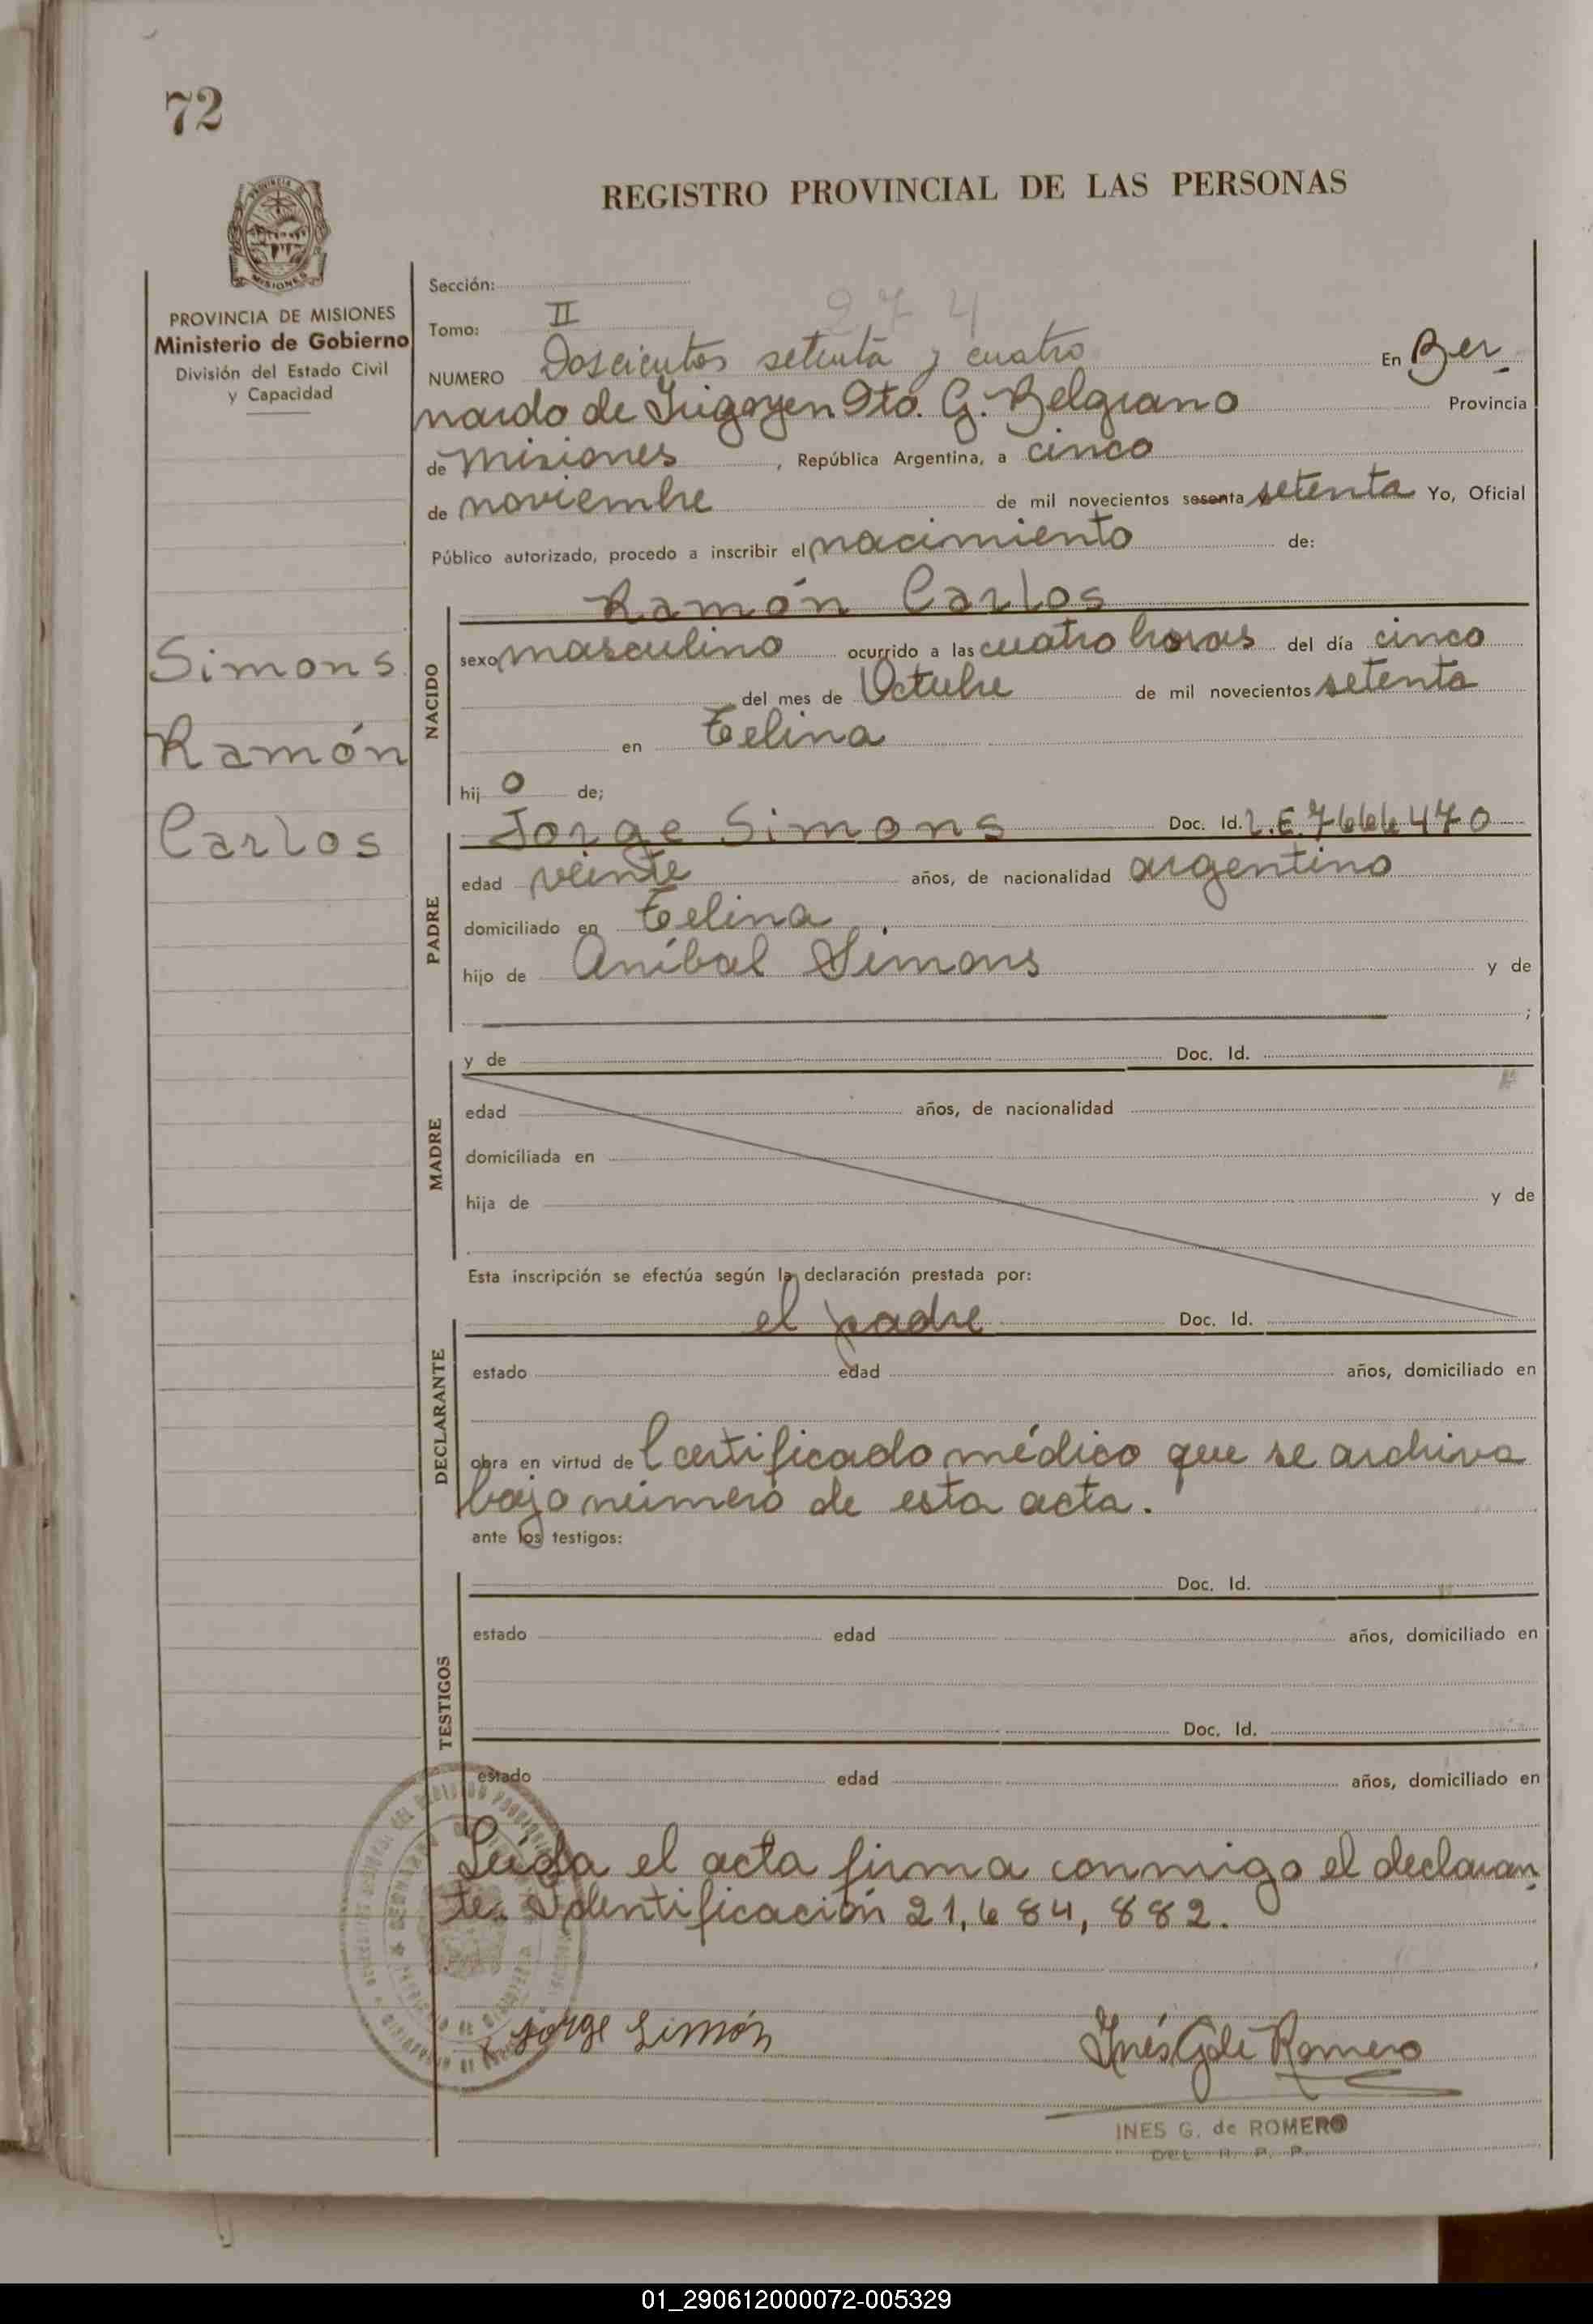 72
REGISTRO PROVINCIAL DE LAS PERSONAS
MISIONES
PROVINCIA DE MISIONES
Ministerio de Gobierno
División del Estado Civil
y Capacidad
Simons
Ramón
Carlos
Sección:
274
Tomo: II
NUMERO Doscientos setenta y cuatro En Ber
nardo de Irigoyen Dto. G. Belgrano Provincia
de Misiones, República Argentina, a cinco
de noviembre de mil novecientos sesenta setenta Yo, Oficial
Público autorizado, procedo a inscribir el nacimiento de:
Ramón Carlos
NACIDO
sexo masculino ocurrido a las cuatro horas del día cinco
del mes de Octubre de mil novecientos setenta
en Celina
hijo de;
PADRE
Jorge Simons Doc. Id. L.E. 7666470
edad veinte años, de nacionalidad argentino
domiciliado en Celina
hijo de Aníbal Simons y de
;
MADRE
y de Doc. Id.
edad años, de nacionalidad
domiciliada en
hija de y de
Esta inscripción se efectúa según la declaración prestada por:
DECLARANTE
el padre Doc. Id.
estado edad años, domiciliado en
obra en virtud del certificado médico que se archiva
bajo número de esta acta.
ante los testigos:
TESTIGOS
Doc. Id.
estado edad años, domiciliado en
Doc. Id.
estado edad años, domiciliado en
Leída el acta firma conmigo el declaran
te. Identificación 21,684,882.
Jorge Simón
Inés G de Romero
INES G. de ROMERO
DEL R. P. P.
01_290612000072-005329